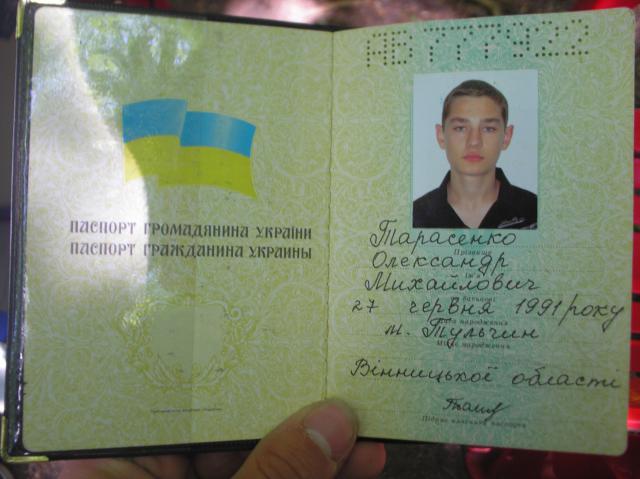 ПАСПОРТ ГРОМАДЯНИНА УКРАЇНИ
ПАСПОРТ ГРАЖДАНИНА УКРАИНЫ
АВ 777922
Тарасенко
Прізвище
Олександр
Ім'я
Михайлович
По батькові
27 червня 1991 року
Дата народження
м. Тульчин
Місце народження
Вінницької області
Підпис власника паспорта